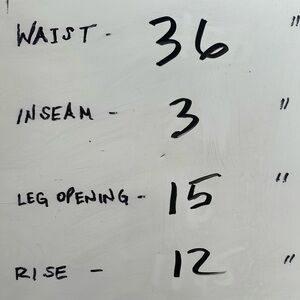 WAIST - 36 "
INSEAM - 3 "
LEG OPENING - 15 "
RISE - 12 "